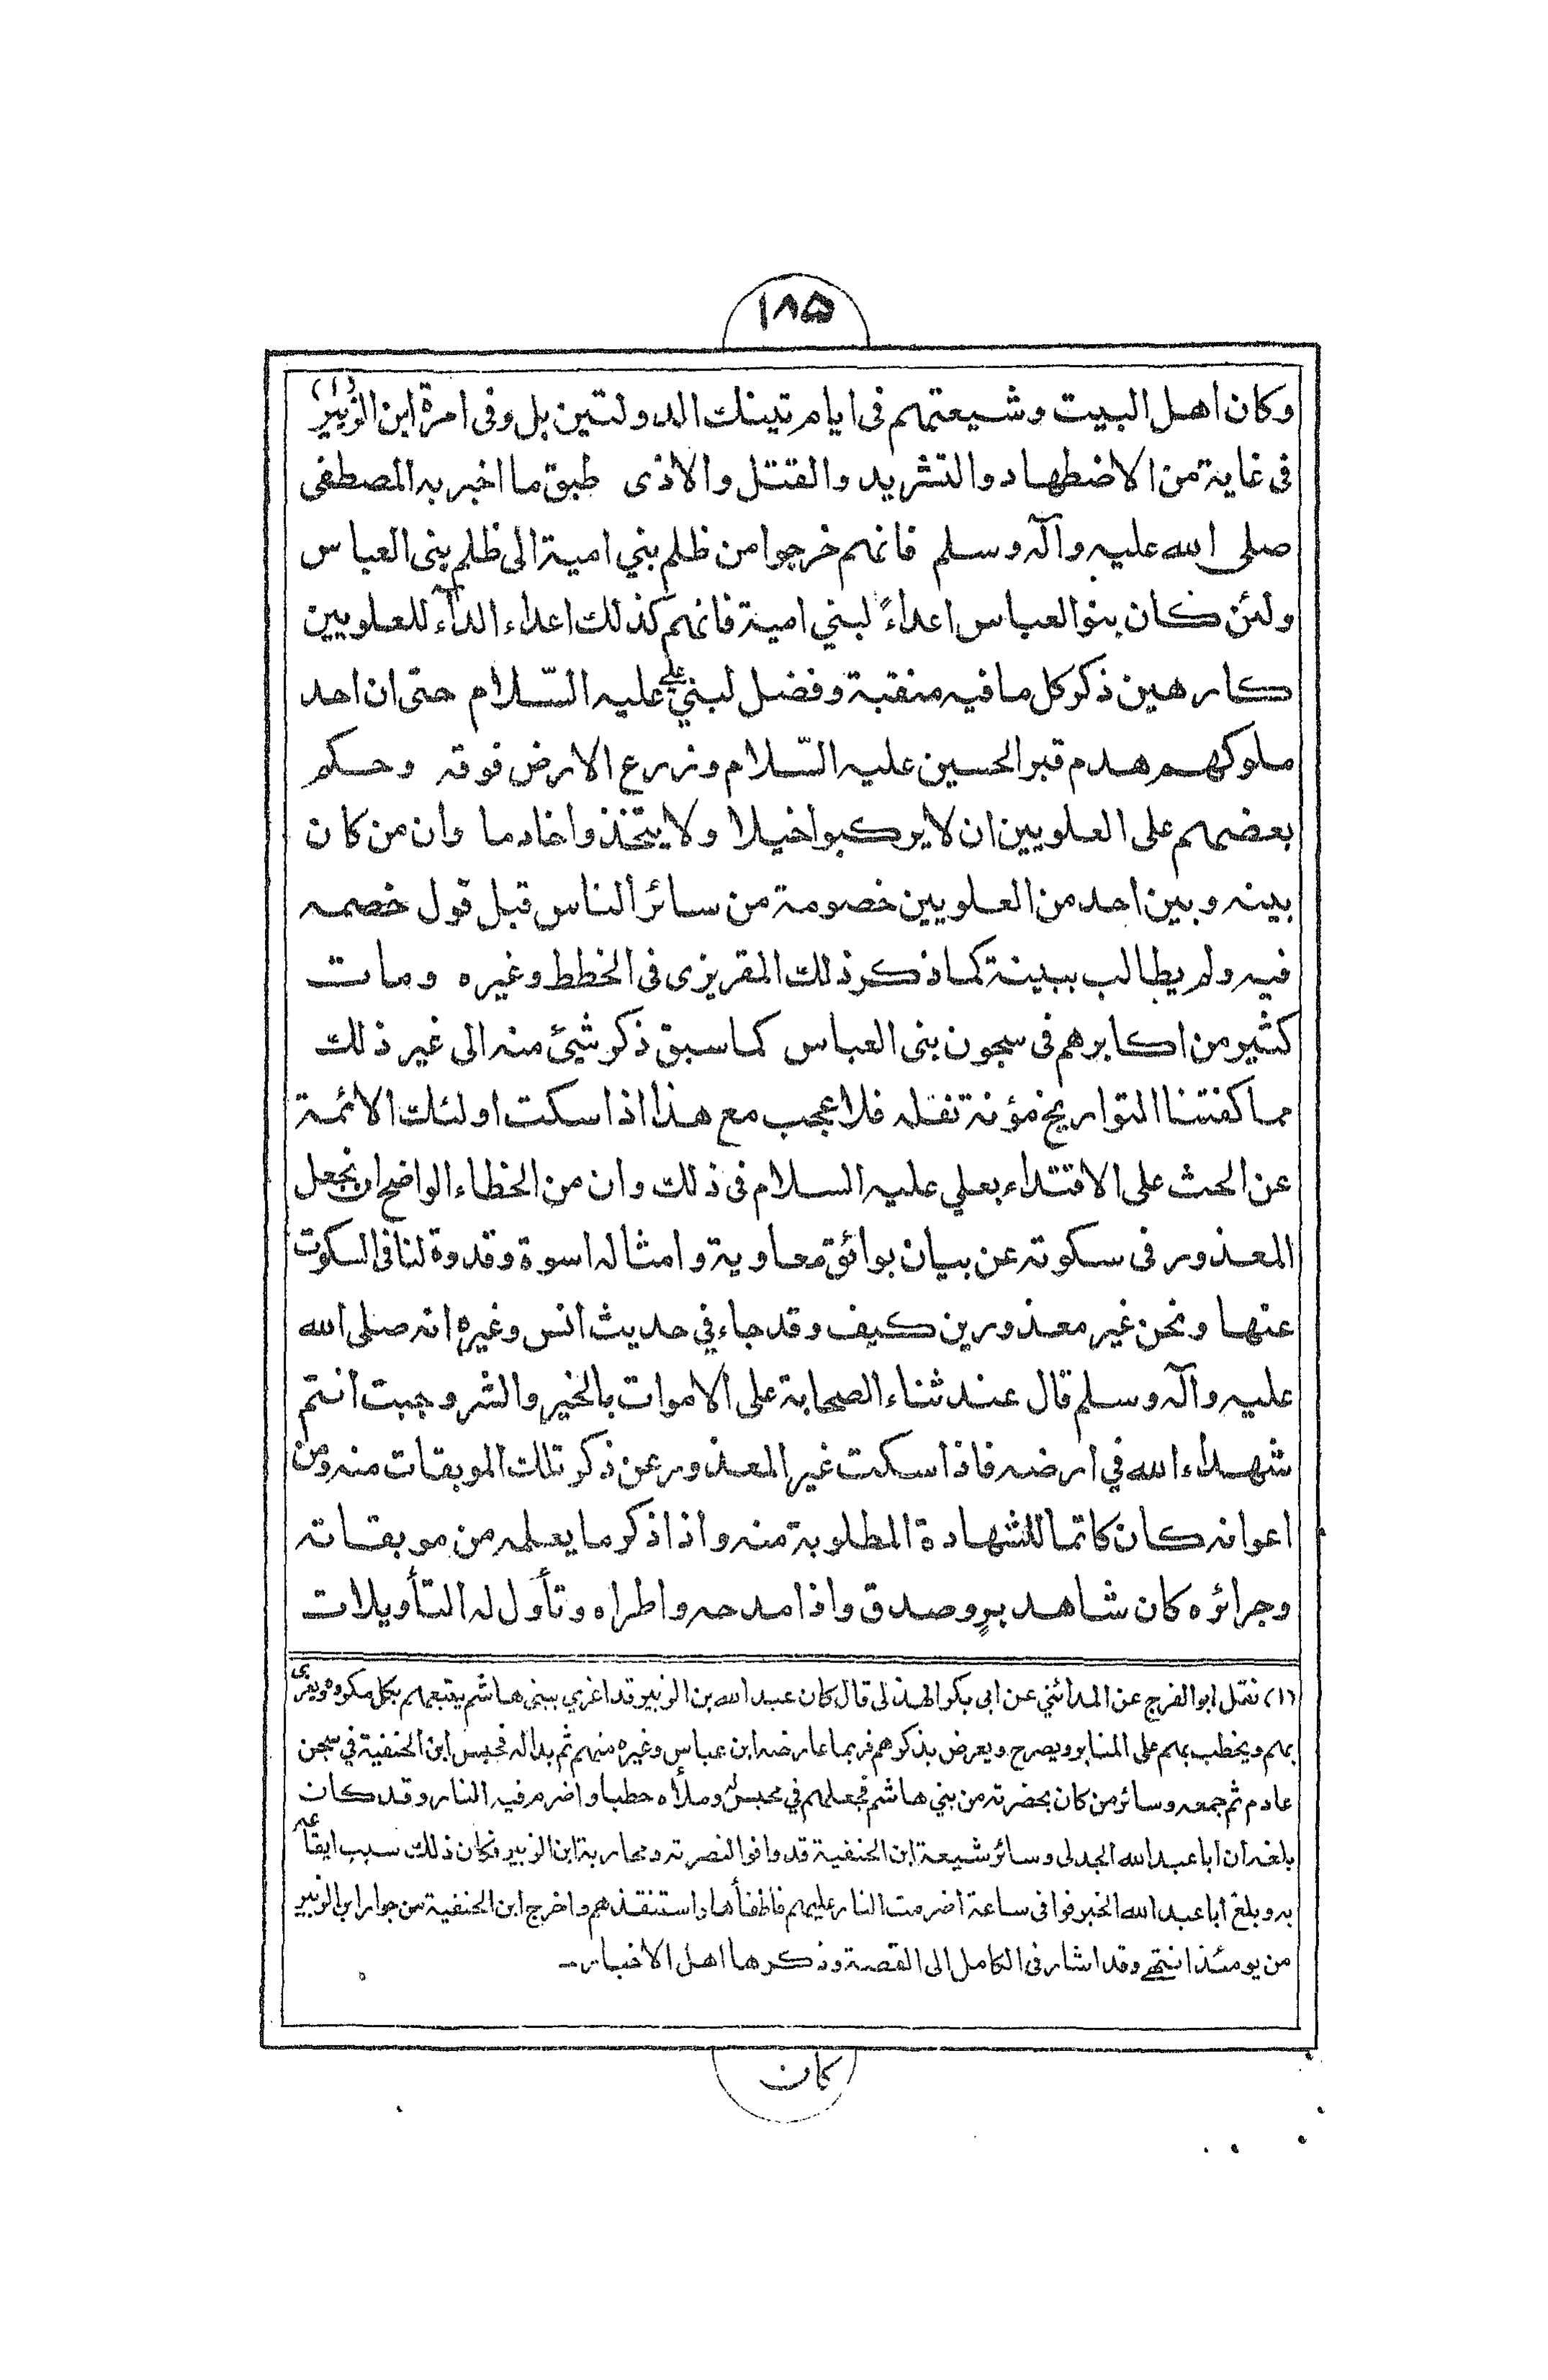 ١٨٥
وكان اهل البيت وشيعتهم فى ايام تينك الدولتين بل وفى امرة ابن الزبير (١)
فى غاية من الاضطهاد والتشريد والقتل والاذى طبق ما اخبر به المصطفى
صلى الله عليه وآله وسلم فانهم خرجوا من ظلم بني امية الى ظلم بنى العباس
ولئن كان بنو العباس اعداءً لبني امية فانهم كذلك اعداء الداء للعلويين
كارهين ذكر كل ما فيه منقبة وفضل لبني علي عليه السّلام حتى ان احد
ملوكهم هدم قبر الحسين عليه السّلام وزرع الارض فوقه وحكم
بعضهم على العلويين ان لا يركبوا خيلا ولا يتخذوا خادما وأن من كان
بينه وبين احد من العلويين خصومة من سائر الناس قبل قول خصمه
فيه ولم يطالب ببينة كما ذكر ذلك المقريزى فى الخطط وغيره ومات
كثير من اكابرهم فى سجون بنى العباس كما سبق ذكر شيئ منه الى غير ذلك
مما كفتنا التواريخ مؤنة نقله فلا عجب مع هذا اذا سكت اولئك الائمة
عن الحث على الاقتداء بعلي عليه السلام فى ذلك وان من الخطاء الواضح ان نجعل
المعذور فى سكوته عن بيان بوائق معاوية وامثاله اسوة وقدوة لنا فى السكوت
عنها ونحن غير معذورين كيف وقد جاء في حديث انس وغيره انه صلى الله
عليه وآله وسلم قال عند ثناء الصحابة على الاموات بالخير والشر وجبت انتم
شهداء الله في ارضه فاذا سكت غير المعذور عن ذكر تلك الموبقات منه ومن
اعوانه كان كاتما للشهادة المطلوبة منه واذا ذكر ما يعلمه من موبقاته
وجرائره كان شاهد برٍ وصدق واذا مدحه واطراه وتأول له التأويلات
(١) نقل ابو الفرج عن المدائني عن ابى بكر الهذلى قال كان عبد الله بن الزبير قد اغري ببني هاشم يتبعهم بكل مكروه ويغرى
بهم ويخطب بهم على المنابر ويصرح ويعرض بذكرهم فربما عارضه ابن عباس وغيره منهم ثم بدا له فحبس ابن الحنفية في سجن
عارم ثم جمعه وسائر من كان بحضرته من بني هاشم فجعلهم في محبس له وملأه حطبا واضرم فيه النار وقد كان
بلغه ان ابا عبد الله الجدلى وسائر شيعة ابن الحنفية قد وافوا لنصرته ومحاربة ابن الزبير فكان ذلك سبب ايقاعه
به وبلغ ابا عبد الله الخبر فوافى ساعة اضرمت النار عليهم فاطفأها واستنقذهم واخرج ابن الحنفية من جوار ابن الزبير
من يومئذ انتهى وقد اشار فى الكامل الى القصة وذكرها اهل الاخبار -
كان